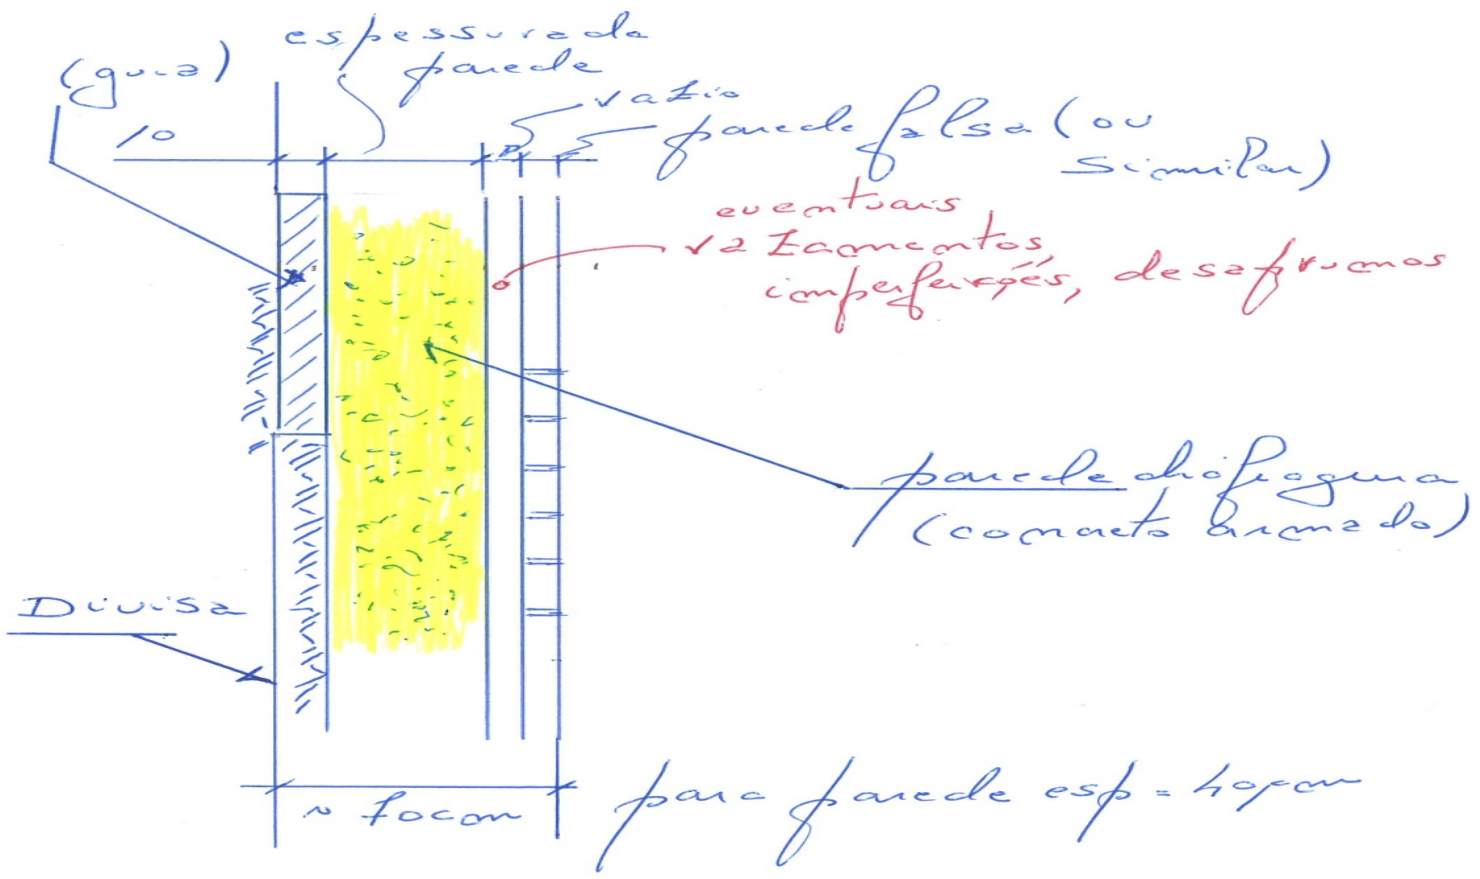 espessura da
parede
(guia)
10
vazio
parede falsa (ou
similar)
eventuais
vazamentos,
imperfeições, desaprumos
parede diafragma
(concreto armado)
Divisa
~ 70cm
para parede esp = 40cm